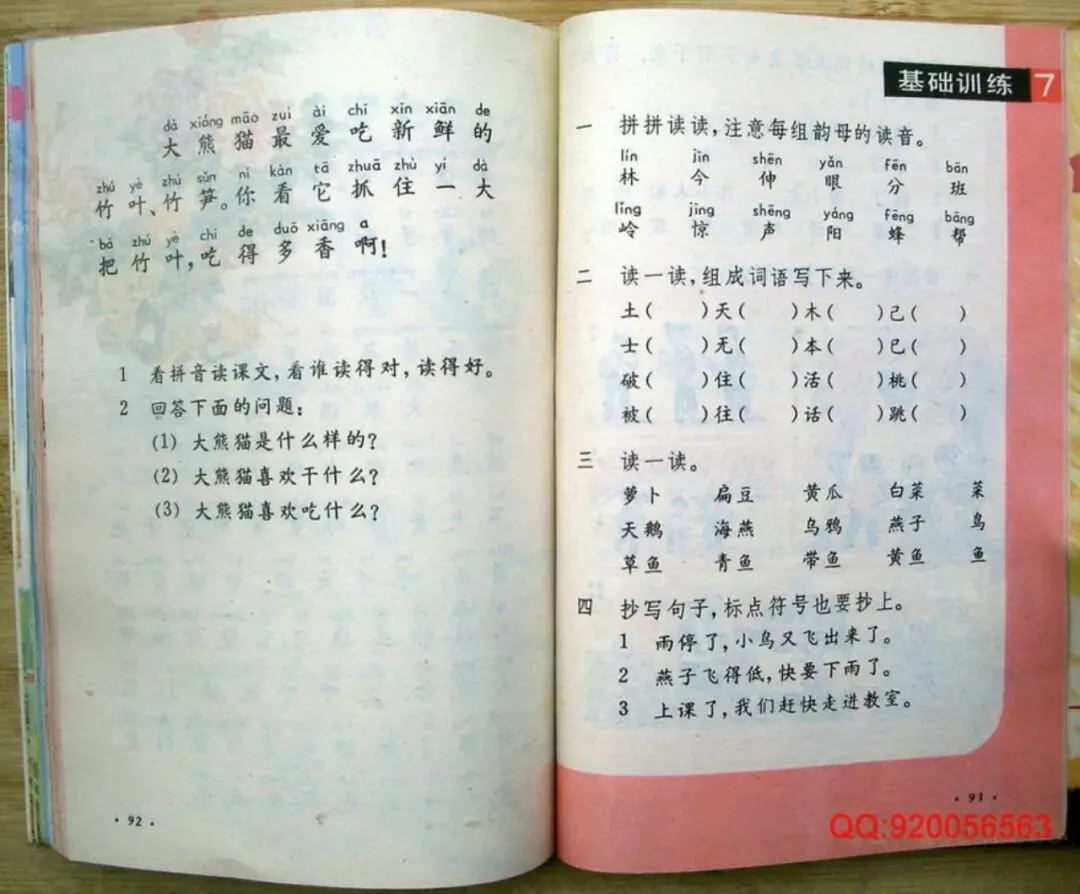 dà xióng māo zuì ài chī xīn xiān de
大熊猫最爱吃新鲜的
zhú yè zhú sǔn nǐ kàn tā zhuā zhù yí dà
竹叶、竹笋。你看它抓住一大
bǎ zhú yè chī de duō xiāng a
把竹叶,吃得多香啊!
1 看拼音读课文,看谁读得对,读得好。
2 回答下面的问题:
(1) 大熊猫是什么样的?
(2) 大熊猫喜欢干什么?
(3) 大熊猫喜欢吃什么?
·92·
基础训练 7
一 拼拼读读,注意每组韵母的读音。
lín jīn shēn yǎn fēn bān
林 今 伸 眼 分 班
lǐng jīng shēng yáng fēng bāng
岭 惊 声 阳 蜂 帮
二 读一读,组成词语写下来。
土( )天( )木( )己( )
士( )无( )本( )已( )
破( )住( )活( )桃( )
被( )往( )话( )跳( )
三 读一读。
萝卜 扁豆 黄瓜 白菜 菜
天鹅 海燕 乌鸦 燕子 鸟
草鱼 青鱼 带鱼 黄鱼 鱼
四 抄写句子,标点符号也要抄上。
1 雨停了,小鸟又飞出来了。
2 燕子飞得低,快要下雨了。
3 上课了,我们赶快走进教室。
·93·
QQ:920056563